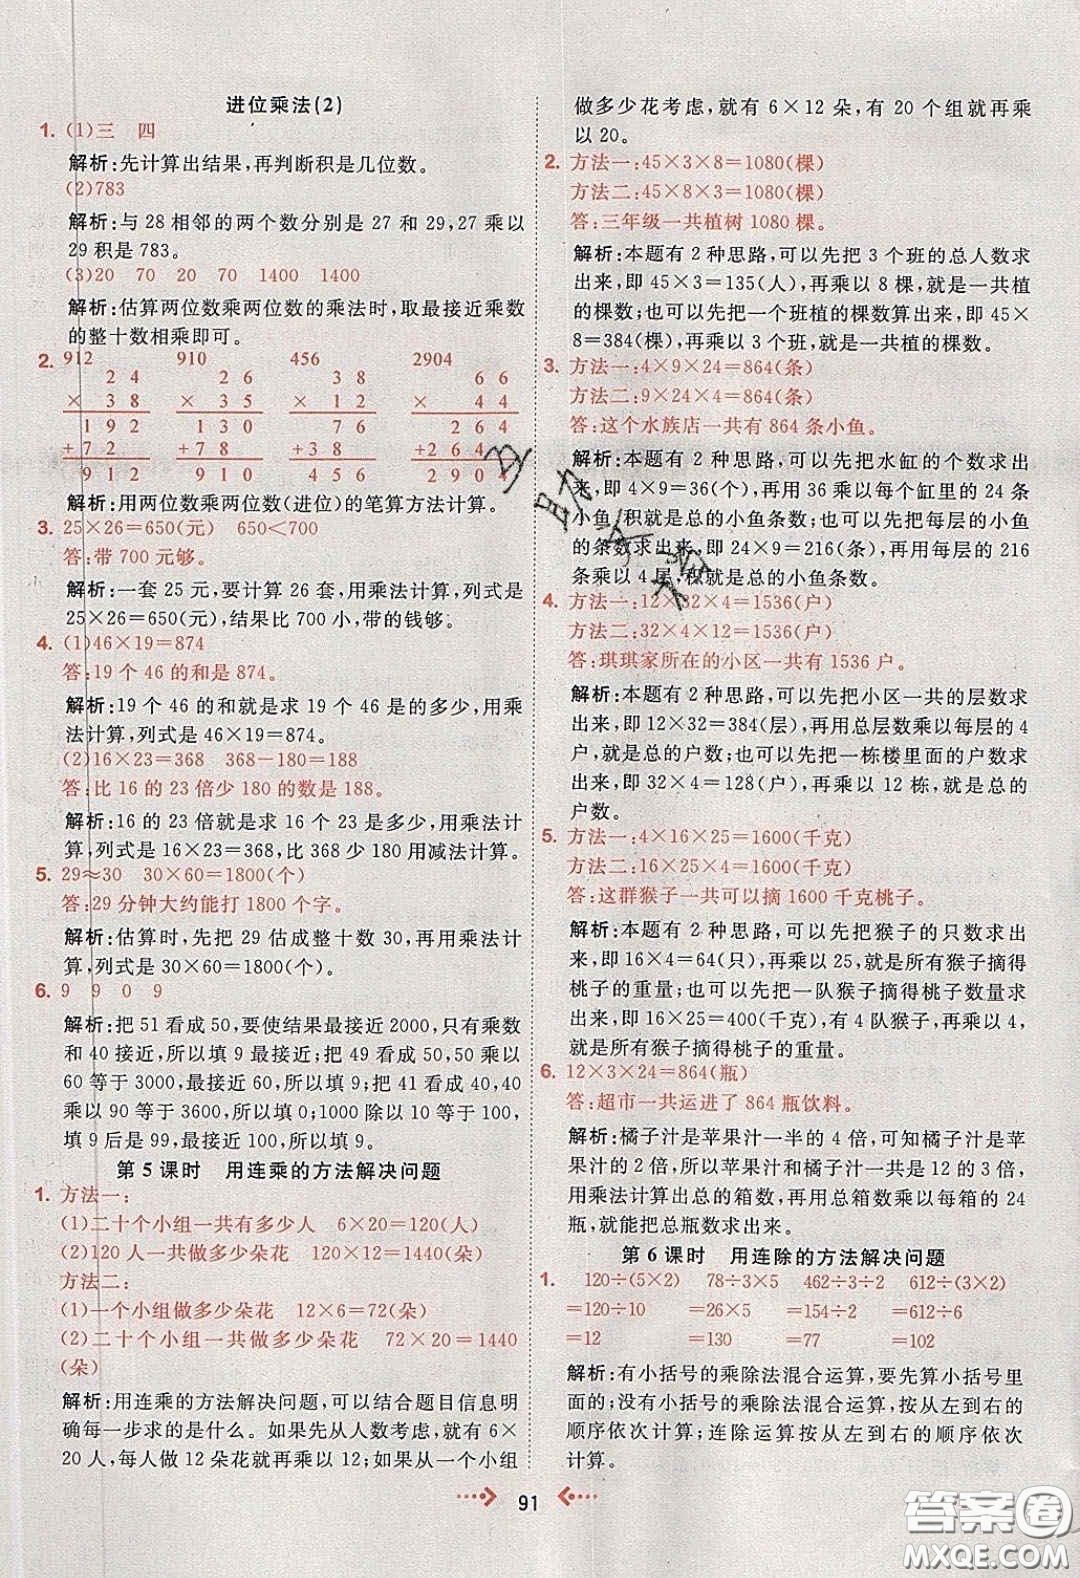 进位乘法(2)
1. (1)三　四
解析:先计算出结果,再判断积是几位数。
(2)783
解析:与 28 相邻的两个数分别是 27 和 29,27 乘以
29 积是 783。
(3)20　70　20　70　1400　1400
解析:估算两位数乘两位数的乘法时,取最接近乘数
的整十数相乘即可。
2. 912　910　456　2904
2 4　2 6　3 8　6 6
× 3 8　× 3 5　× 1 2　× 4 4
1 9 2　1 3 0　7 6　2 6 4
+ 7 2　+ 7 8　+ 3 8　+ 2 6 4
9 1 2　9 1 0　4 5 6　2 9 0 4
解析:用两位数乘两位数(进位)的笔算方法计算。
3. 25×26=650(元)　650<700
答:带 700 元够。
解析:一套 25 元,要计算 26 套,用乘法计算,列式是
25×26=650(元),结果比 700 小,带的钱够。
4. (1)46×19=874
答:19 个 46 的和是 874。
解析:19 个 46 的和就是求 19 个 46 是多少,用乘
法计算,列式是 46×19=874。
(2)16×23=368　368-180=188
答:比 16 的 23 倍少 180 的数是 188。
解析:16 的 23 倍就是求 16 个 23 是多少,用乘法计
算,列式是 16×23=368,比 368 少 180 用减法计算。
5. 29≈30　30×60=1800(个)
答:29 分钟大约能打 1800 个字。
解析:估算时,先把 29 估成整十数 30,再用乘法计
算,列式是 30×60=1800(个)。
6. 9　9　0　9
解析:把 51 看成 50,要使结果最接近 2000,只有乘数
和 40 接近,所以填 9 最接近;把 62 看成 60,50 乘以
60 等于 3000,最接近,所以填 9;把 41 看成 40,40 乘以
90 等于 3600,所以填 0;1000 除以 10 等于 100,
填 9 后是 99,最接近 100,所以填 9。
第 5 课时　用连乘的方法解决问题
1. 方法一:
(1)二十个小组一共有多少人　6×20=120(人)
(2)120 人一共做多少朵花　120×12=1440(朵)
方法二:
(1)一个小组做多少朵花　12×6=72(朵)
(2)二十个小组一共做多少朵花　72×20=1440
(朵)
解析:用连乘的方法解决问题,可以结合题目信息明
确每一步求的是什么。如果先从人数考虑,就有 6×
20 人,每人做 12 朵花就再乘以 12。如果从一个小组
做多少花考虑,就有 6×12 朵,有 20 个组就再乘
以 20。
2. 方法一:45×3×8=1080(棵)
方法二:45×8×3=1080(棵)
答:三年级一共植树 1080 棵。
解析:本题有 2 种思路,可以先把 3 个班的总人数求
出来,即 45×3=135(人),再乘以 8 棵,就是一共植
的棵数;也可以先把一个班植的棵数算出来,即 45×
8=384(棵),再乘以 3 个班,就是一共植的棵数。
3. 方法一:4×9×24=864(条)
方法二:9×24×4=864(条)
答:这个水族店一共有 864 条小鱼。
解析:本题有 2 种思路,可以先把水缸的个数求出
来,即 4×9=36(个),再用 36 乘每个缸里的 24 条
小鱼,积就是总的小鱼条数;也可以先把每层的小鱼
的条数求出来,即 24×9=216(条),再用每层的 216
条乘以 4 层,积就是总的小鱼条数。
4. 方法一:12×32×4=1536(户)
方法二:32×4×12=1536(户)
答:琪琪家所在的小区一共有 1536 户。
解析:本题有 2 种思路,可以先把小区一共的层数求
出来,即 12×32=384(层),再用总层数乘以每层的 4
户,就是总的户数;也可以先把一栋楼里面的户数算
出来,即 32×4=128(户),再乘以 12 栋,就是总的
户数。
5. 方法一:4×16×25=1600(千克)
方法二:16×25×4=1600(千克)
答:这群猴子一共可以摘 1600 千克桃子。
解析:本题有 2 种思路,可以先把猴子的只数求出
来,即 16×4=64(只),再乘以 25,就是所有猴子摘得
桃子的重量;也可以先把一队猴子摘得桃子的重量求
出来,即 16×25=400(千克),有 4 队猴子,再乘以 4,
就是所有猴子摘得桃子的重量。
6. 12×3×24=864(瓶)
答:超市一共运进了 864 瓶饮料。
解析:橘子汁是苹果汁一半的 4 倍,可知橘子汁是苹
果汁的 2 倍,所以苹果汁与橘子汁一共是 12 的 3 倍,
用乘法计算出总的箱数,再用总箱数乘以每箱的 24
瓶,就能把总瓶数求出来。
第 6 课时　用连除的方法解决问题
1. 120÷(5×2)　78÷3×5　462÷3÷2　612÷(3×2)
=120÷10　=26×5　=154÷2　=612÷6
=12　=130　=77　=102
解析:有小括号的乘除法混合运算,要先算小括号里
面的;没有小括号的乘除法混合运算,按从左到右的
顺序依次计算;连除运算按从左到右的顺序依次
计算。
91
答案圈
MXQE.COM